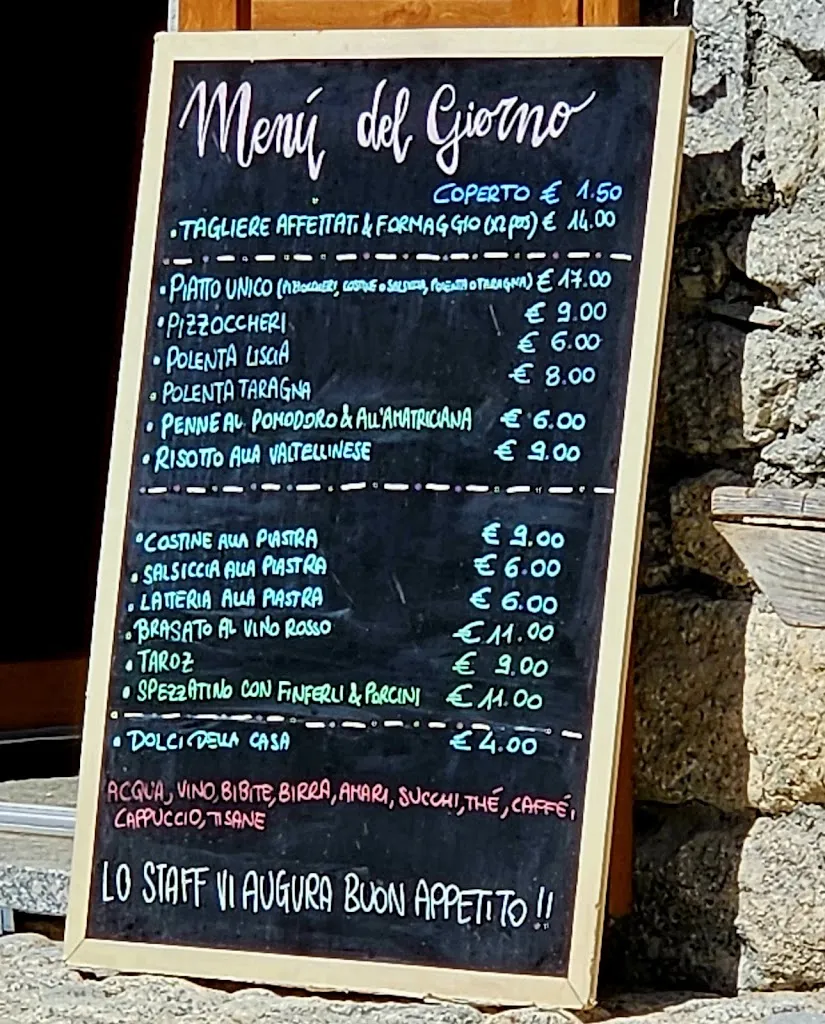 Menú del Giorno
COPERTO € 1.50
• TAGLIERE AFFETTATI & FORMAGGIO (x2 pos) € 14.00
• PIATTO UNICO (PIZZOCCHERI, COSTINE o SALSICCIA, POLENTA o TARAGNA) € 17.00
• PIZZOCCHERI € 9.00
• POLENTA LISCIA € 6.00
• POLENTA TARAGNA € 8.00
• PENNE AL POMODORO & ALL'AMATRICIANA € 6.00
• RISOTTO ALLA VALTELLINESE € 9.00
• COSTINE ALLA PIASTRA € 9.00
• SALSICCIA ALLA PIASTRA € 6.00
• LATTERIA ALLA PIASTRA € 6.00
• BRASATO AL VINO ROSSO € 11.00
• TAROZ € 9.00
• SPEZZATINO CON FINFERLI & PORCINI € 11.00
• DOLCI DELLA CASA € 4.00
ACQUA, VINO, BIBITE, BIRRA, AMARI, SUCCHI, THÉ, CAFFÉ,
CAPPUCCIO, TISANE
LO STAFF VI AUGURA BUON APPETITO !!